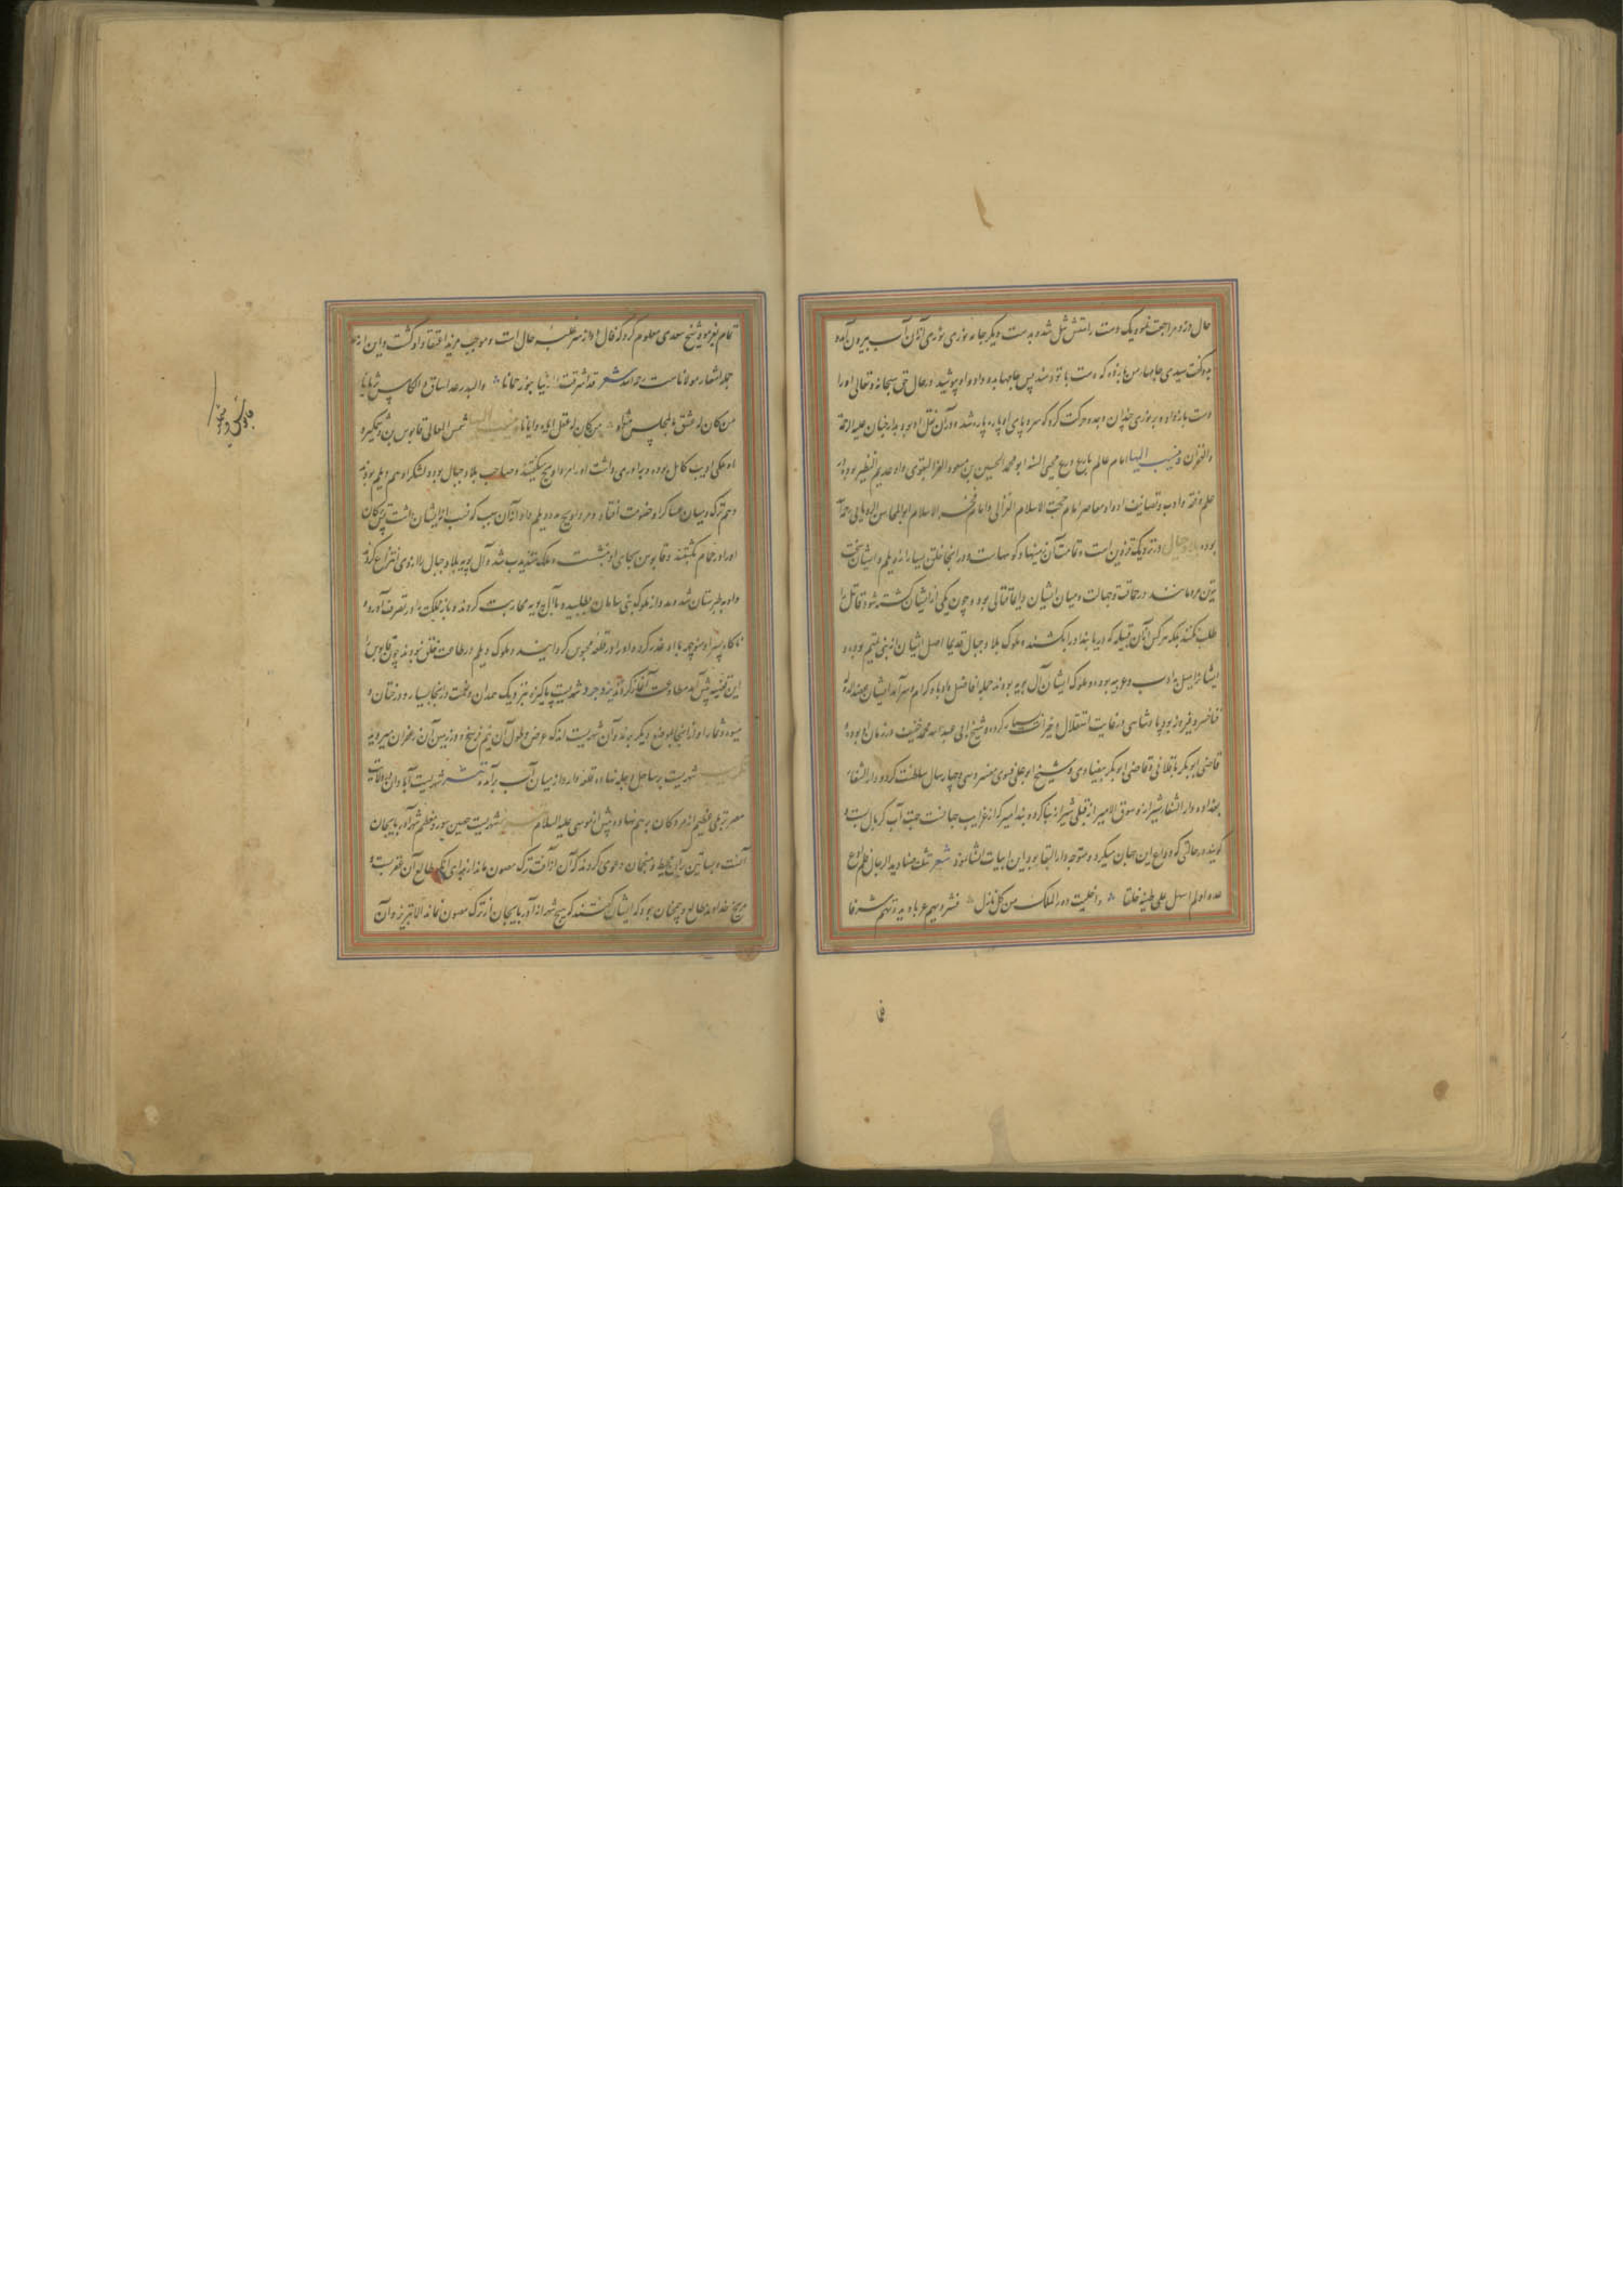 حال دزد مراجعت نمود و یک دست راستش شل شده بدست دیگر جامه نوری نوری از آن آب بیرون آمده
بدو گفت سیدی جامهای من بازده که دست با تو دادند پس جامها بدو داد و او پوشید در حال حق سبحانه و تعالی او را
دست باز داد و بر نوری چندان وجد و حرکت کرد که سر و پای او پاره پاره شد و در آن نقل او بجوار
و ینسب الیها امام عالم بارع ورع محیی السنه ابو محمد الحسین بن مسعود الفرا البغوی و او عدیم النظیر بوده در
علم و فقه و ادب و تصانیف او و او معاصر امام حجت الاسلام الغزالی و امام فخر الاسلام ابو المحاسن الرویانی
بوده بلاد جبال در نزدیک قزوین است و تمامت آن بیشها و کوهها است و در اینجا خلق بسیار از دیلم و ایشان سخت
ترین مردمانند در حماقت و جهالت و میان ایشان دایما قتالی بود و چون یکی از ایشان کشته شود قاتل را
طلب نکنند بلکه هر کس از آن قبیله که دریابند او را بکشند و ملوک بلاد جبال قدیما اصل ایشان از بنی تمیم بوده و
ایشانرا میل بادب و عربیه بوده و ملوک ایشان آل بویه بودند جمله افاضل و ادبا و کرام و سرآمد ایشان عضد الدوله
فناخسرو فیروز بود پادشاهی در غایت استقلال و خیرات بسیار کرده و شیخ ابی عبد الله محمد خفیف در زمان او بوده و
قاضی ابو بکر باقلانی و قاضی ابو بکر بیضاوی و شیخ ابو علی فسوی مفسر و سی و چهار سال سلطنت کرد و دار الشفاء
بغداد و دار الشفاء شیراز و سوق الامیر از قبلی شیراز بنا کرده و بند امیر که از غرایب جهانست جهت آب کربال بست و
گویند در حالتی که وداع این جهان میکرد و متوجه دار البقا بود این ابیات انشا نمود شعر قتلت صنادید الرجال فلم ادع
عدوا و لم امهل علی ظنة خلقا و اخلیت دور الملک من کل نازل فشردتهم غربا و بددتهم شرقا
فما
تمام بفرمود و شیخ سعدی معلوم کرد که فال او از سر غلبه حال است و موجب مزید اعتقاد او گشت و این از
جمله اشعار مولاناست رحمه الله شعر قد اشرقت الدنیا بنور حمیانا و البدر غدا ساقی و الکاس ثریانا
من کان له عشق فالمجلس مثواه من کان له عقل ایاه و ایانا ینسب الیها شمس المعالی قابوس بن وشمگیر و
او ملکی ادیب کامل بوده و برادری داشت او را مرداویج میگفتند و صاحب بلاد جبال بود و لشکر او هم دیلم بودند
و هم ترک و میان عساکر او خصومت افتاد و مرداویج مدد دیلم داد از آن سبب که نسب از ایشان داشت پس ترکان
او را در حمام بکشتند و قابوس بجای او بنشست و ملک متذبذب شد و آل بویه بلاد جبال را از وی انتزاع کردند
و او بطبرستان شد و مدد از ملوک بنی سامان طلبید و با آل بویه محاربت کردند و باز مملکت را در تصرف آورد و
ناگاه پسر او منوچهر با او غدر کرد و او را در قلعه محبوس گردانید و ملوک دیلم در طاعت خلق نبودند چون قابوس را
این قضیه پیش آمد مطاوعت آغاز کردند یزدجرد شهریست پاکیزه نزدیک همدان و نعمت در اینجا بسیار و درختان و
میوه و ثمار او از اینجا بمواضع دیگر برند و آن شهریست اندک عرض و طول آن نیم فرسخ و در زمین آن زعفران میروید
تکریت شهریست بر ساحل دجله نهاده و قلعه دارد از میان آب برآمده تنیس شهریست آبادان ولایت
مصر تربلی عظیم از مردگان بر هم نهاده پیش از موسی علیه السلام تبریز شهریست حصین بسور و معظم شهر آذربایجان
آنست و بساتین بدان محیط و منجمان دعوی کردند که آن از آفت ترک مصون ماند از برای آنکه طالع آن عقربست و
مریخ خداوند طالع و چنان بود که ایشان گفتند که هیچ شهر از آذربایجان از ترک مصون نماند الا تبریز و آن
قابوس